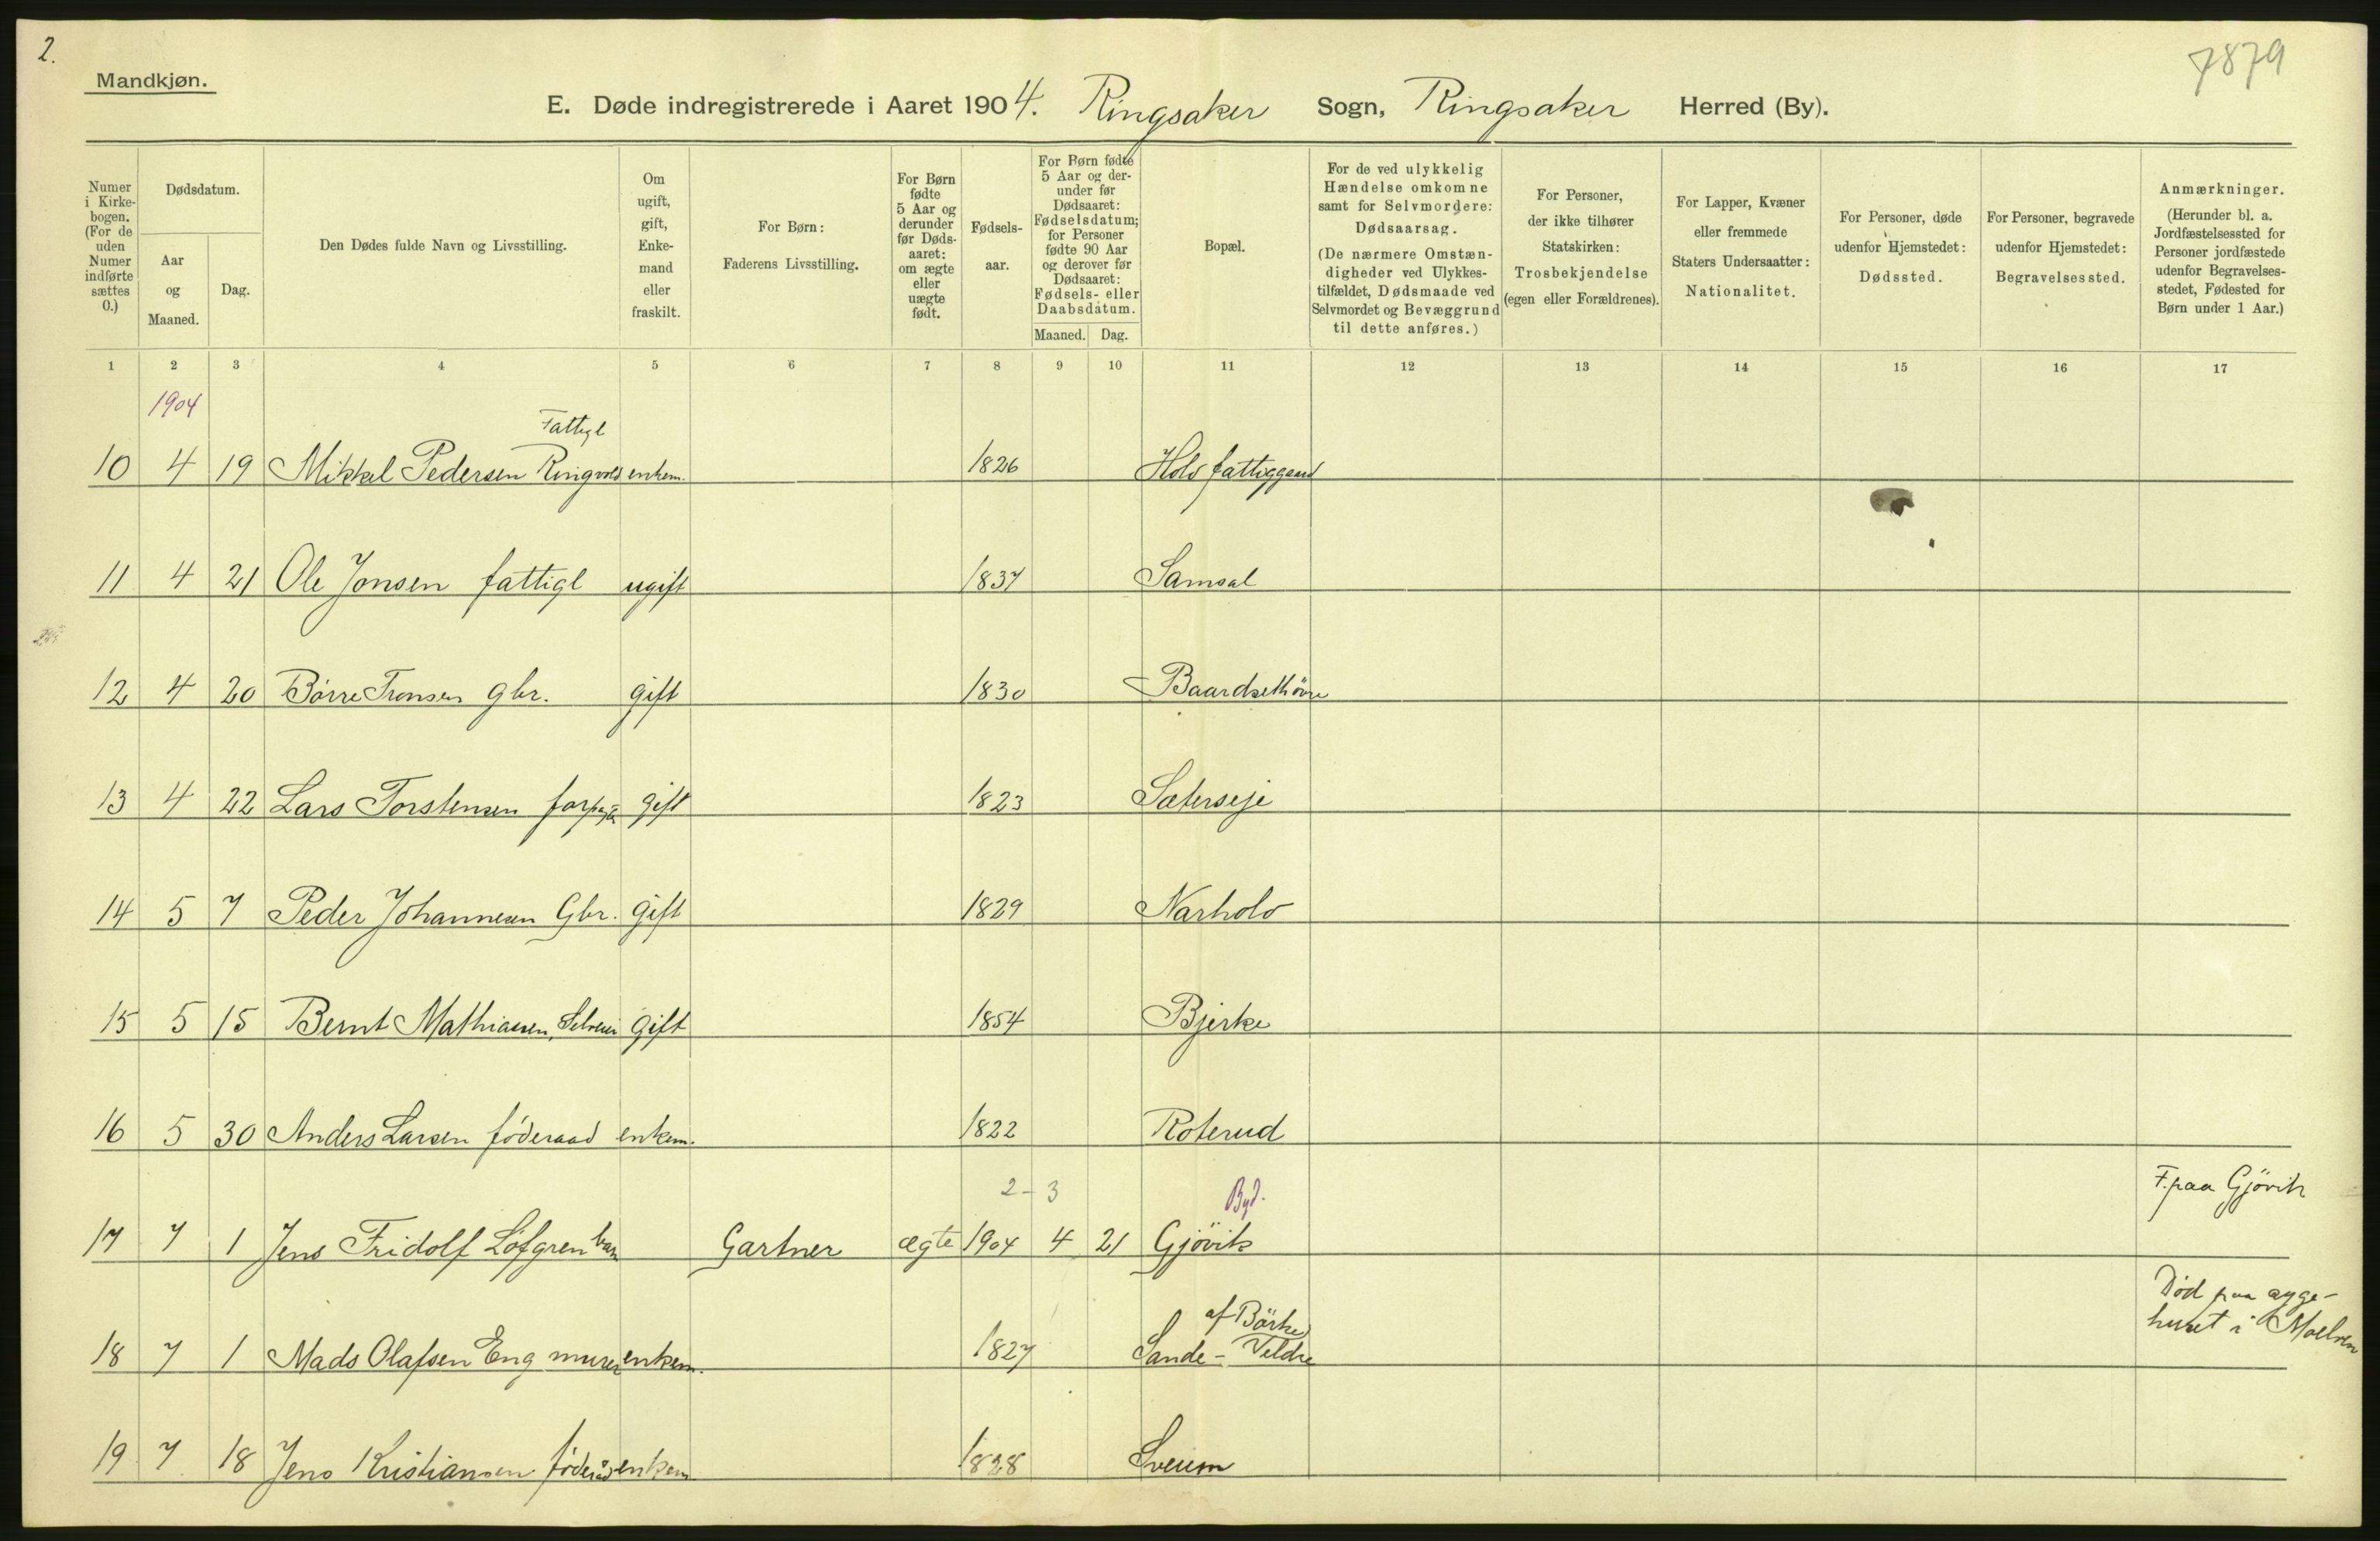 2.
7879
Mandkjøn.
E. Døde indregistrerede i Aaret 1904. Ringsaker Sogn, Ringsaker Herred (By).
Numer i Kirke-bogen. (For de uden Numer indførte sættes 0.)
Dødsdatum.
Aar og Maaned.
Dag.
Den Dødes fulde Navn og Livsstilling.
Om ugift, gift, Enke-mand eller fraskilt.
For Børn: Faderens Livsstilling.
For Børn fødte 5 Aar og derunder før Døds-aaret: om ægte eller uægte født.
Fødsels-aar.
For Børn fødte 5 Aar og der-under før Dødsaaret: Fødselsdatum; for Personer fødte 90 Aar og derover før Dødsaaret: Fødsels- eller Daabsdatum.
Maaned. Dag.
Bopæl.
For de ved ulykkelig Hændelse omkomne samt for Selvmordere: Dødsaarsag. (De nærmere Omstæn-digheder ved Ulykkes-tilfældet, Dødsmaade ved Selvmordet og Bevæggrund til dette anføres.)
For Personer, der ikke tilhører Statskirken: Trosbekjendelse (egen eller Forældrenes).
For Lapper, Kvæner eller fremmede Staters Undersaatter: Nationalitet.
For Personer, døde udenfor Hjemstedet: Dødssted.
For Personer, begravede udenfor Hjemstedet: Begravelsessted.
Anmærkninger. (Herunder bl. a. Jordfæstelsessted for Personer jordfæstede udenfor Begravelses-stedet, Fødested for Børn under 1 Aar.)
1 2 3 4 5 6 7 8 9 10 11 12 13 14 15 16 17
1904
Fattigl
10 4 19 Mikkel Pedersen Ringvold enkem. 1826 Holo fattiggaard
11 4 21 Ole Jonsen fattigl ugift 1837 Samsal
12 4 20 Börre Tronsen gbr. gift 1830 Baardsethöine
13 4 22 Lars Torstensen gift 1823 Sæterseje
14 5 7 Peder Johannesen Gbr. gift 1829 Narholo
15 5 15 Bernt Mathiassen, Selveier gift 1854 Bjerke
16 5 30 Anders Larsen föderaad enkem. 1822 Roterud
2-3 Byd. F. paa Gjövik
17 7 1 Jens Fridolf Löfgren barn Gartner ægte 1904 4 21 Gjövik
af Börke Död paa syge-
18 7 1 Mads Olafsen Eng murer enkem. 1827 Sande - Veldre huset i Moelven
19 7 18 Jens Kristiansen föderåd enkem 1828 Sveum